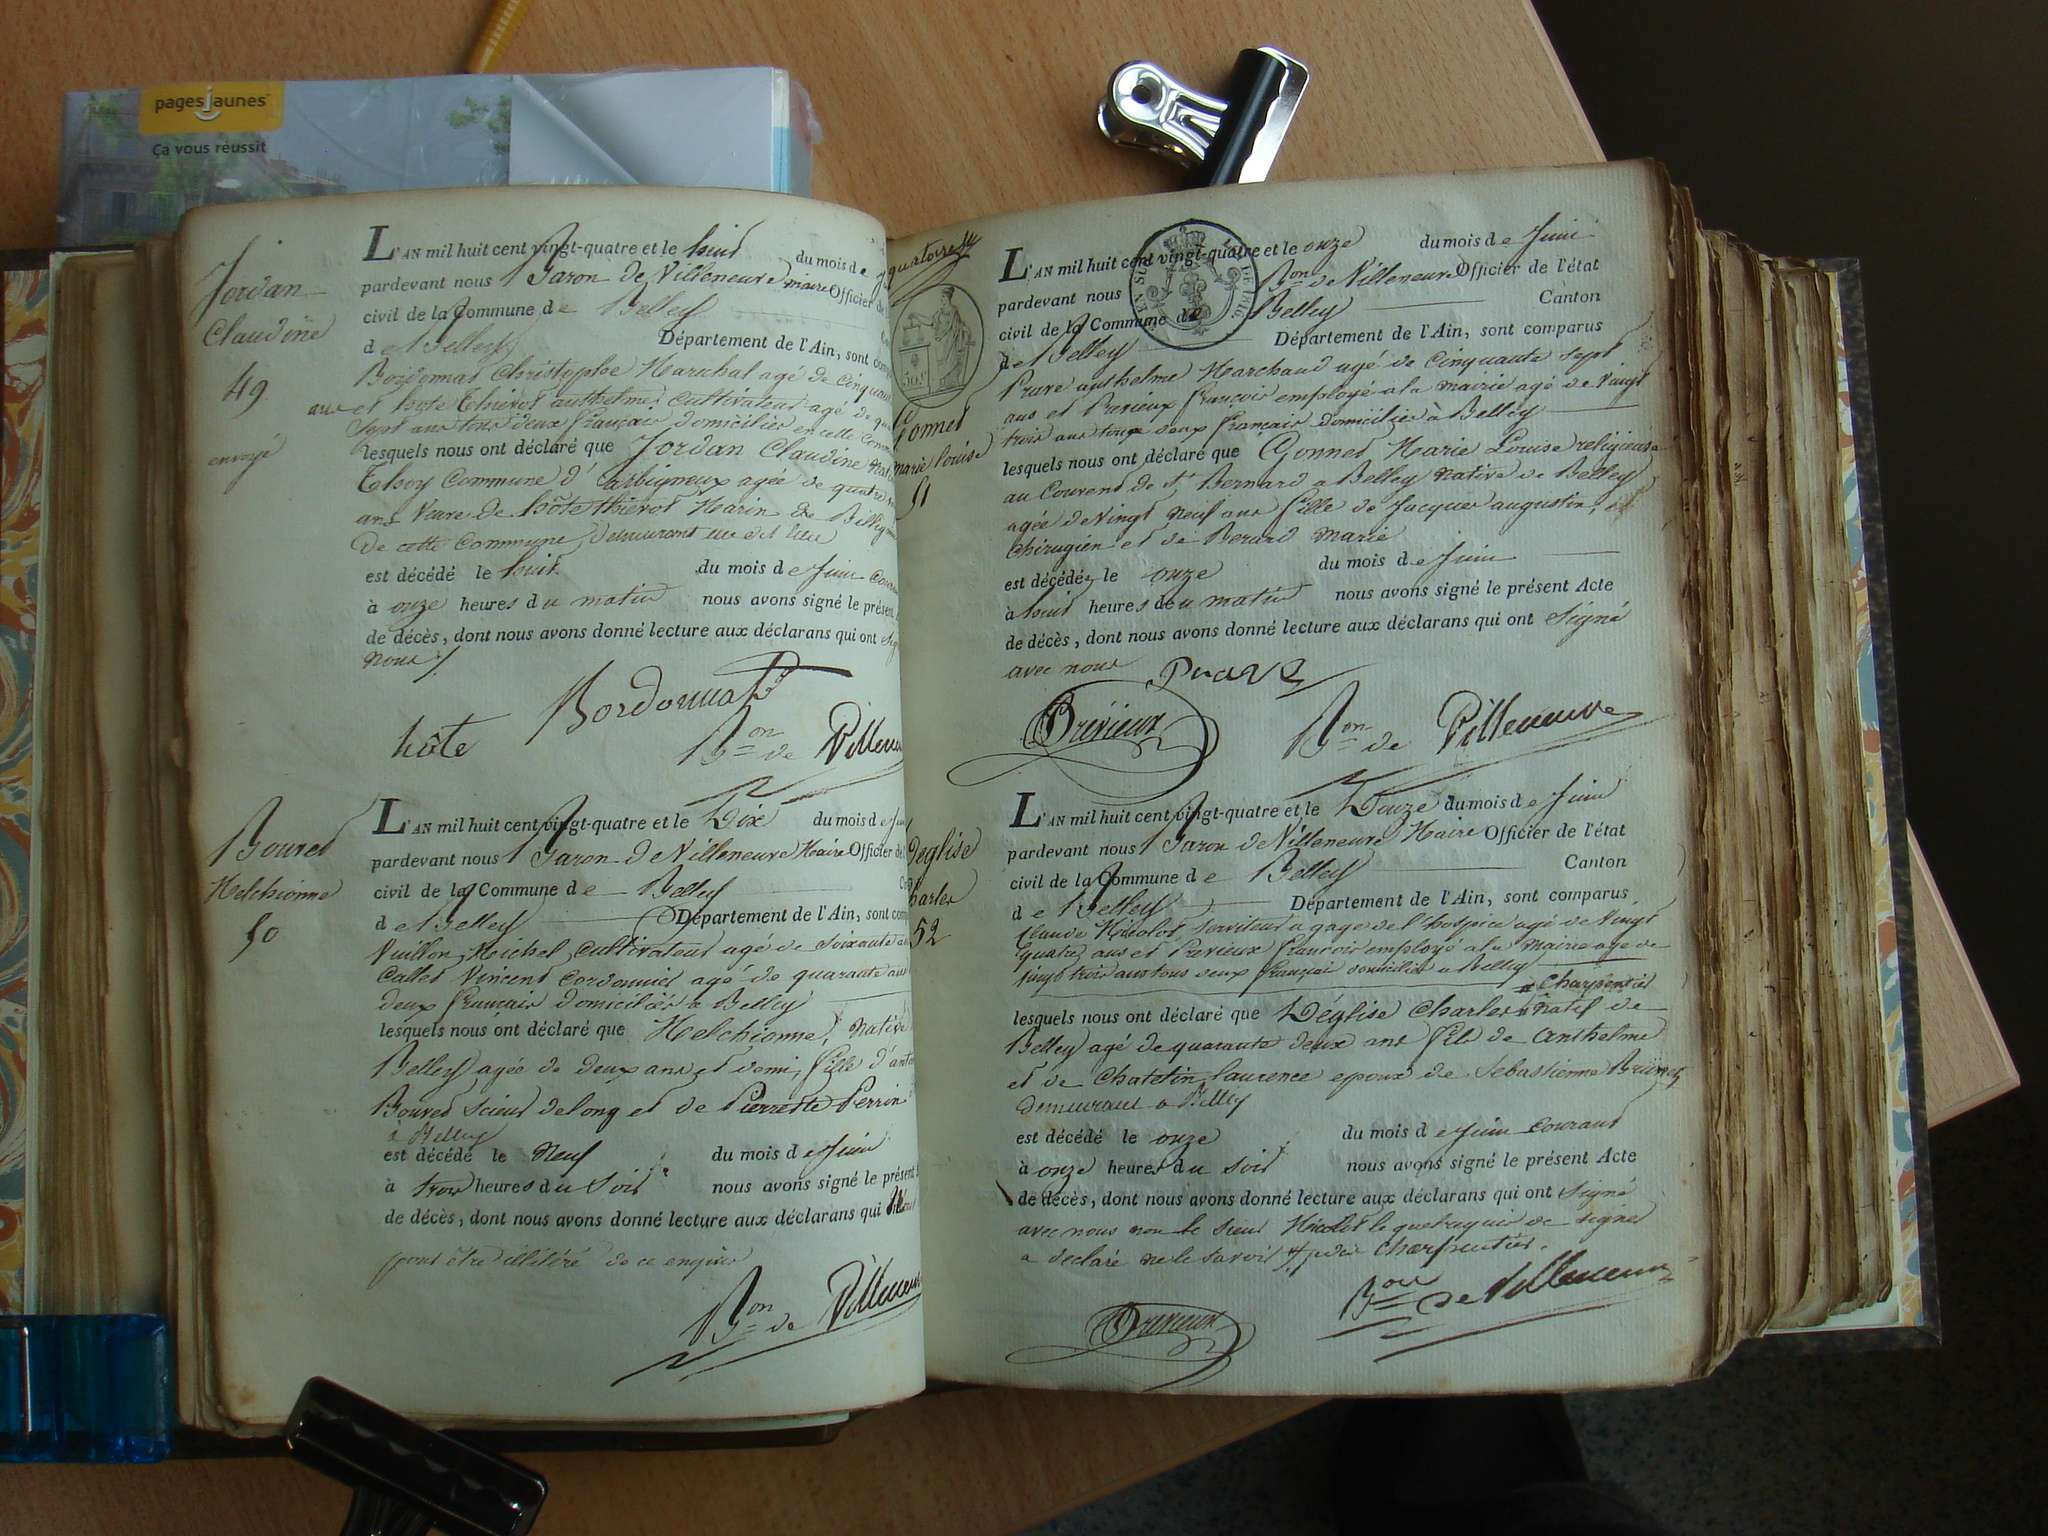 pagesjaunes
Ça vous réussit
Jordan
Claudine
49
envoyé
L'AN mil huit cent vingt-quatre et le huit du mois de
pardevant nous Baron de Villeneuve maire Officier de
civil de la Commune de Belley
de Belley Département de l'Ain, sont
Bordonnat Christophe Marechal agé de Cinquante
ans et hôte thievot anthelme Cultivateur agé de
Sept ans tous deux français domiciliés en cette
lesquels nous ont déclaré que Jordan Claudine
Thoy Commune d'arbigneux agée de quatre
ans Veuve de hôte thievot Marin de
de cette Commune, demeurant au dit lieu
est décédé le huit du mois de Juin
à onze heures du matin nous avons signé le présent
de décès, dont nous avons donné lecture aux déclarans qui ont
nous
hôte Bordonnat
Bon de Villeneuve
Bouvet
Melchionne
50
L'AN mil huit cent vingt-quatre et le Dix du mois de
pardevant nous Baron de Villeneuve Maire Officier de
civil de la Commune de Belley
de Belley Département de l'Ain, sont
Vuillon Michel Cultivateur agé de Soixante
Callet Vincent Cordonnier agé de quarante ans
deux français domiciliés a Belley
lesquels nous ont déclaré que Melchionne, native
Belley agée de deux ans et demi, fille d'
Bouvet Scieur de long et de Pierrette Perrin
a Belley
est décédé le neuf du mois de Juin
à trois heures du Soir nous avons signé le présent
de décès, dont nous avons donné lecture aux déclarans qui
pour être illitéré de ce enquis
Bon de Villeneuve
quatorze
50 C.
Gonnet
marie louise
51
L'AN mil huit cent vingt-quatre et le onze du mois de Juin
pardevant nous Bon de Villeneuve Officier de l'état
civil de la Commune de Belley Canton
de Belley Département de l'Ain, sont comparus
Prave anthelme Marchand agé de Cinquante Sept
ans et Prévieux françois employé a la mairie agé de Vingt
trois ans tous deux français Domiciliés à Belley
lesquels nous ont déclaré que Gonnet Marie Louise religieuse
au Couvent de St Bernard a Belley native de Belley
agée de Vingt neuf ans fille de Jacques augustin,
Chirugien et de Berard Marie
est décédée le onze du mois de Juin
à huit heures du matin nous avons signé le présent Acte
de décès, dont nous avons donné lecture aux déclarans qui ont Signé
avec nous Prave
Prévieux Bon de Villeneuve
Deglise
Charles
52
L'AN mil huit cent vingt-quatre et le Douze du mois de Juin
pardevant nous Baron de Villeneuve Maire Officier de l'état
civil de la Commune de Belley Canton
de Belley Département de l'Ain, sont comparus
Claude Nicolot Serviteur a gage de l'hospice agé de Vingt
quatre ans et Prévieux françois employé a la Mairie agé de
Vingt trois ans tous deux français domiciliés a Belley
# Charpentier
lesquels nous ont déclaré que Déglise Charles # natif de
Belley agé de quarante deux ans fils de Anthelme
et de Chatelin laurence epoux de Sebastienne
demeurant a Belley
est décédé le onze du mois de Juin Courant
à onze heures du Soir nous avons signé le présent Acte
de décès, dont nous avons donné lecture aux déclarans qui ont Signé
avec nous non le Sieur Nicolot lequel requis de Signer
a declaré ne le Savoir # Charpentier.
Bon de Villeneuve
Prévieux